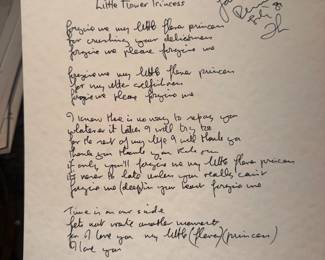 Little Flower Princess
forgive me my little flower princess
for crushing your delicateness
forgive me please forgive me
forgive me my little flower princess
for my utter selfishness
forgive me please forgive me
I know there is no way to repay you
whatever it takes I will try to
for the rest of my life I will thank you
thank you thank you
if only you'll forgive me my little flower princess
it's never too late unless you really can't
forgive me (deep) in your heart forgive me
Time is on our side
lets not waste another moment
for I love you my little (flower) (princess)
I love you